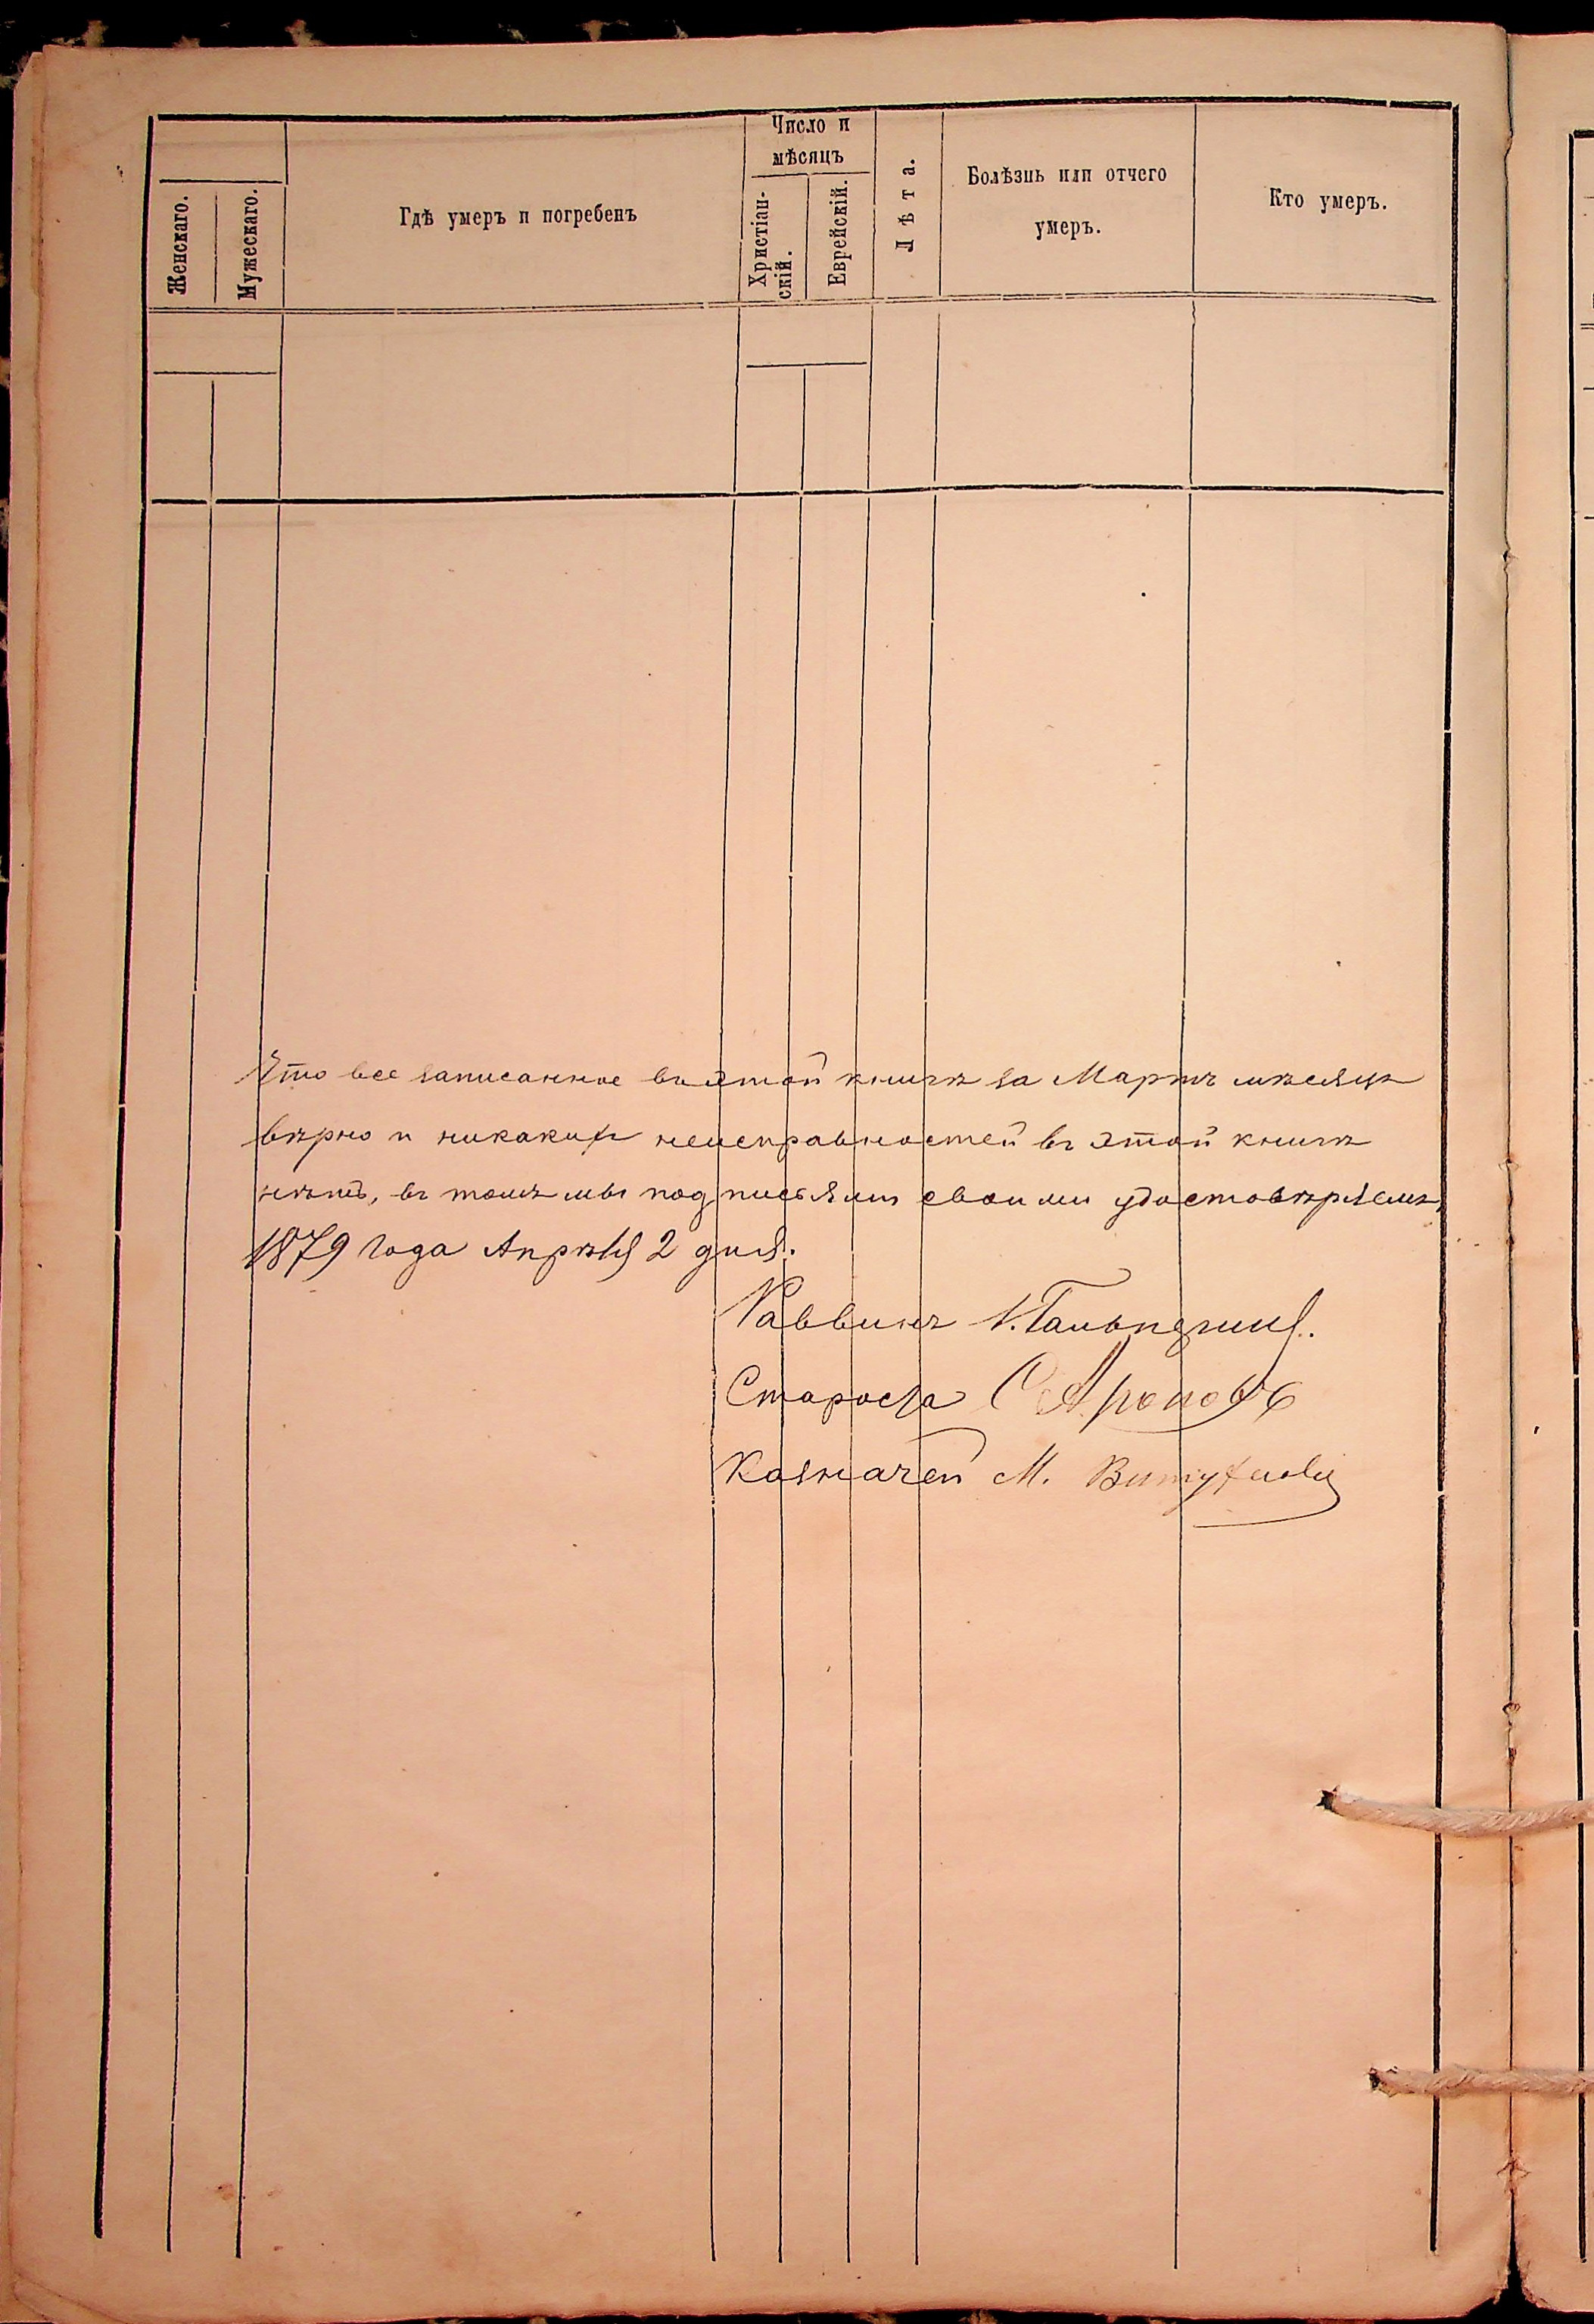 Женскаго.
Мужескаго.
Гдѣ умеръ и погребенъ
Число и
мѣсяцъ
Христіан-
скій.
Еврейскій.
Лѣта.
Болѣзнь или отчего
умеръ.
Кто умеръ.
Что все записанное въ этой книгѣ за Мартъ мѣсяцъ
вѣрно и никакихъ неисправностей въ этой книгѣ
нѣтъ, въ томъ мы подписьями своими удостовѣряемъ,
1879 года Апрѣля 2 дня.
Раввинъ
Староста С Ароновъ
Казначей М.